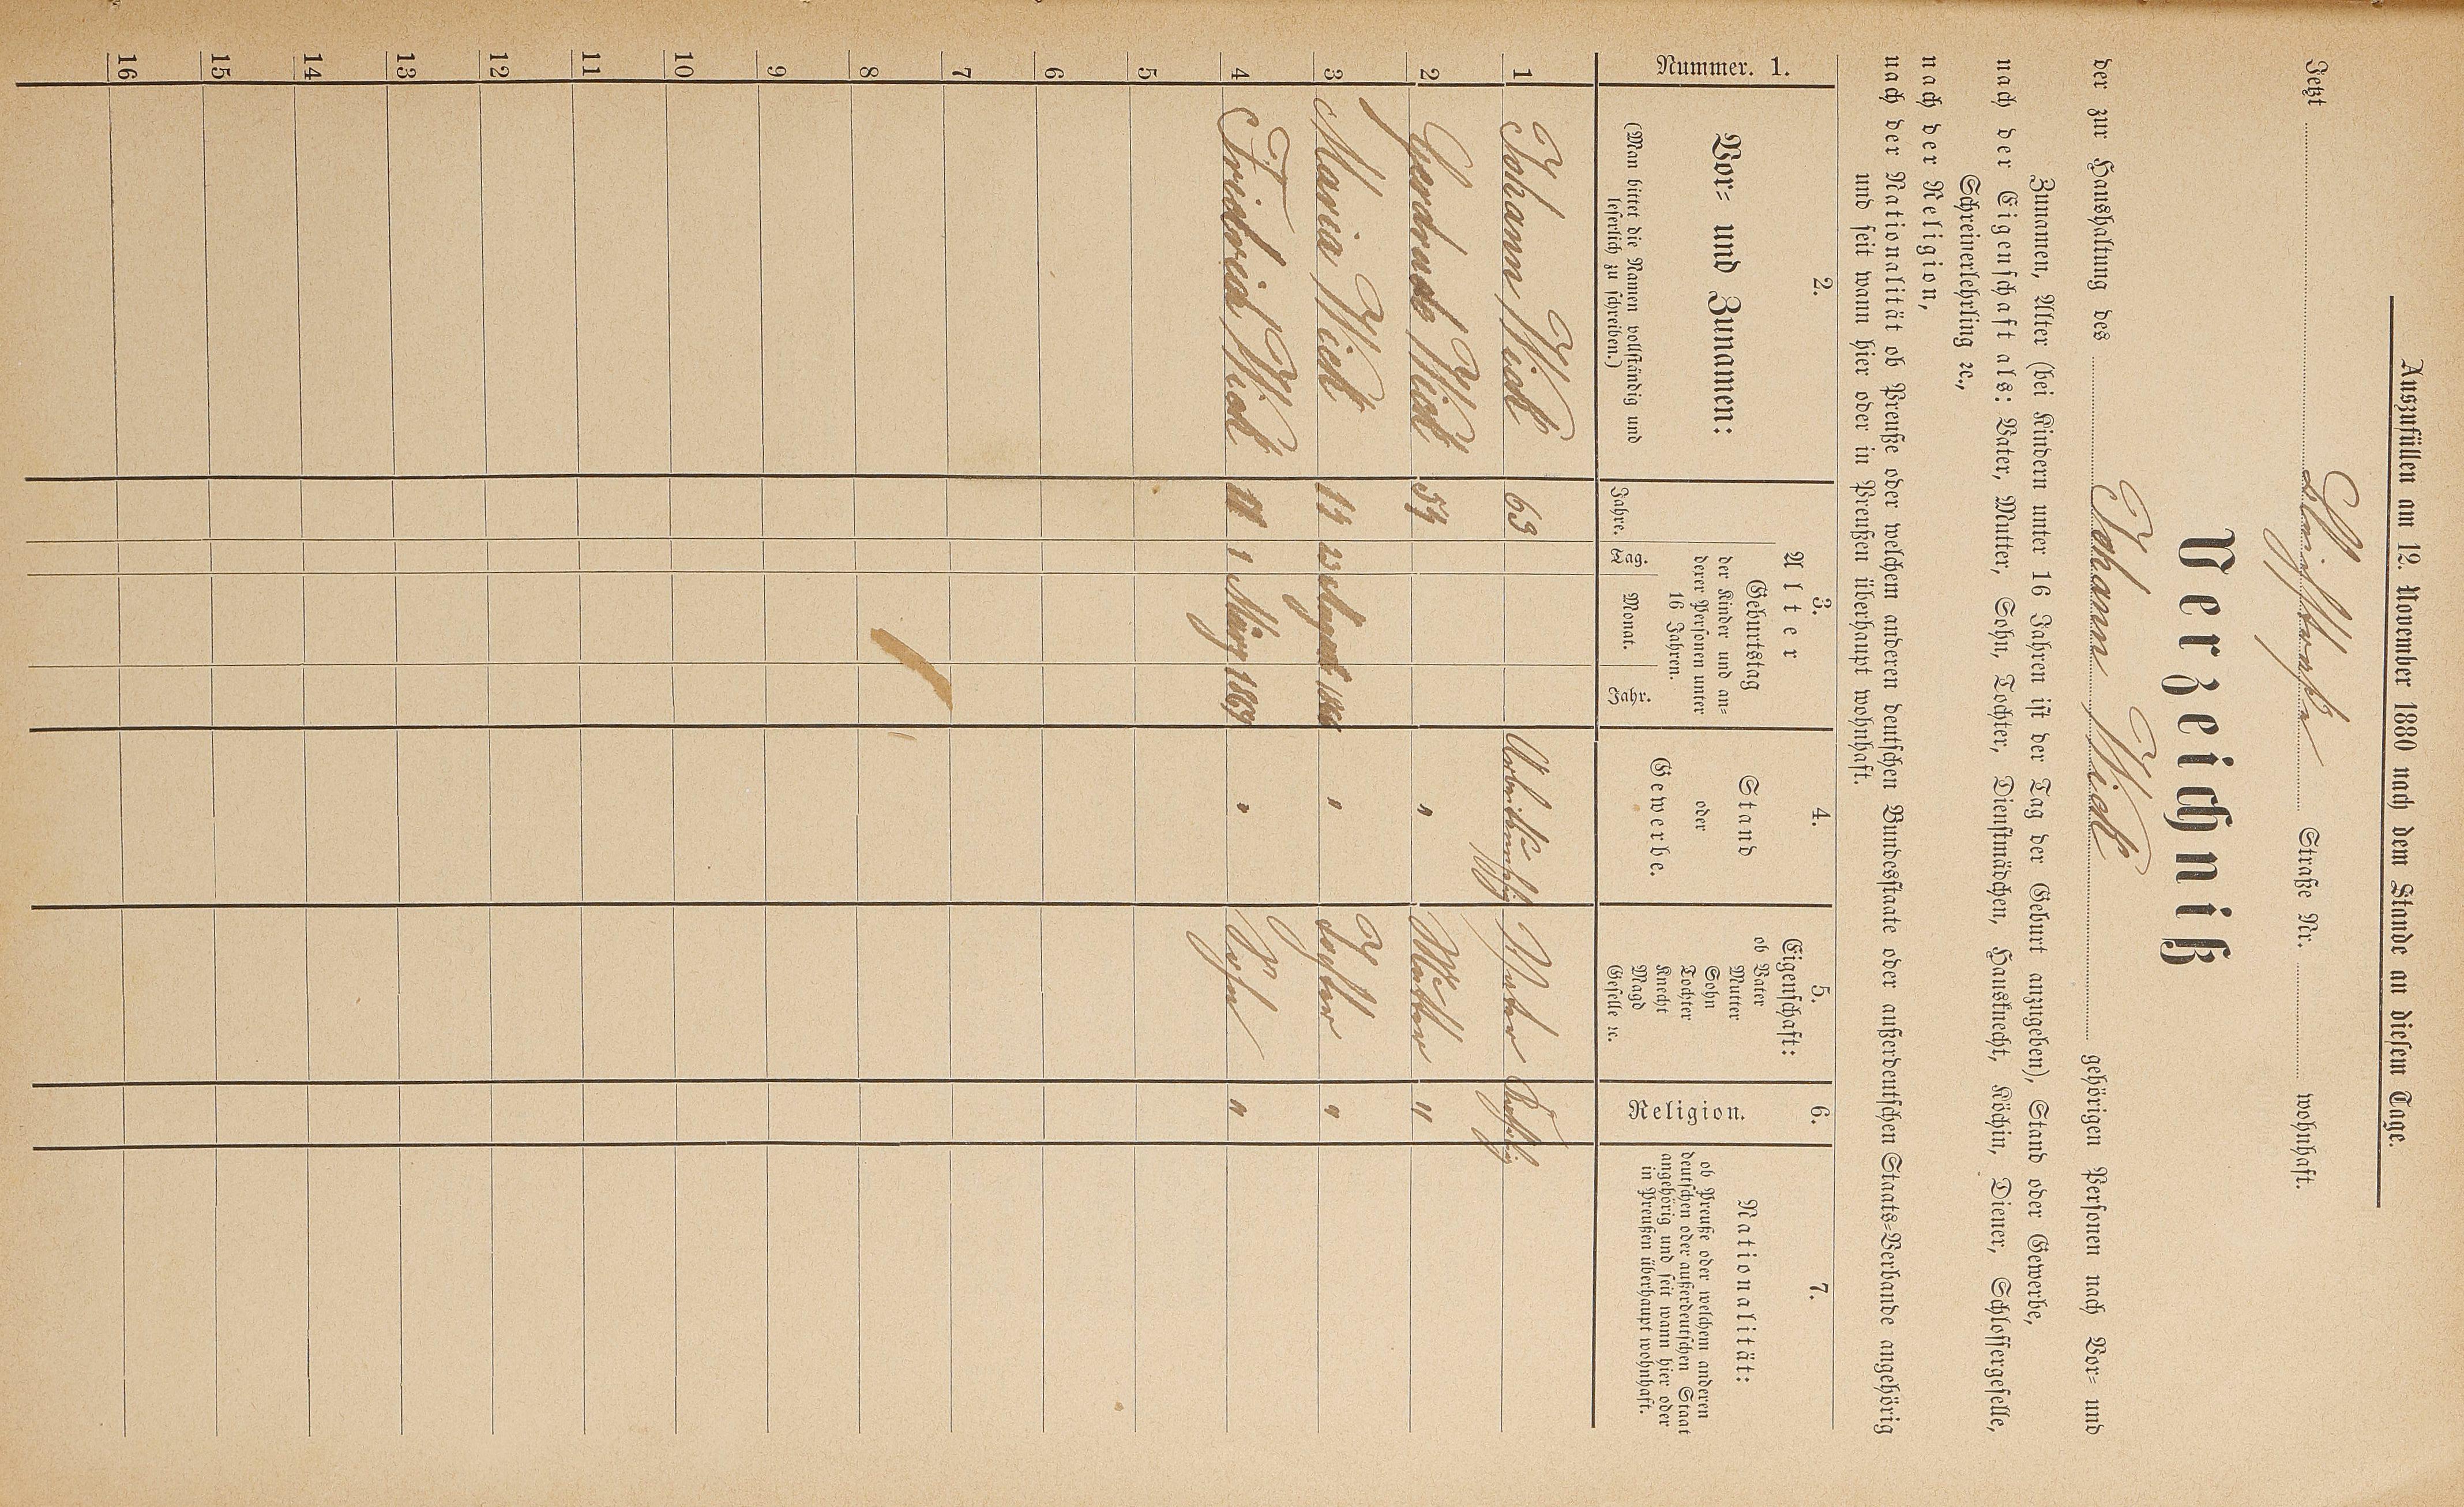 Auszufüllen am 12. November 1880 nach dem Stande an diesem Tage.
Jetzt Straße Nr. wohnhaft.
Verzeichniß
der zur Haushaltung des Johann Wick gehörigen Personen nach Vor- und
Zunamen, Alter (bei Kindern unter 16 Jahren ist der Tag der Geburt anzugeben), Stand oder Gewerbe,
nach der Eigenschaft als: Vater, Mutter, Sohn, Tochter, Dienstmädchen, Hausknecht, Köchin, Diener, Schlossergeselle,
Schreinerlehrling ꝛc.,
nach der Religion,
nach der Nationalität ob Preuße oder welchem anderen deutschen Bundesstaate oder außerdeutschen Staats-Verbande angehörig
und seit wann hier oder in Preußen überhaupt wohnhaft.
Nummer. 1.
2.
Vor- und Zunamen:
(Man bittet die Namen vollständig und
leserlich zu schreiben.)
3.
Alter
Jahre.
Geburtstag
der Kinder und an-
derer Personen unter
16 Jahren.
Tag. Monat. Jahr.
4.
Stand
oder
Gewerbe.
5.
Eigenschaft:
ob Vater
Mutter
Sohn
Tochter
Knecht
Magd
Geselle ꝛc.
6.
Religion.
7.
Nationalität:
ob Preuße oder welchem anderen
deutschen oder außerdeutschen Staat
angehörig und seit wann hier oder
in Preußen überhaupt wohnhaft.
1 Johann Wick 63 Vater
2 Gerdrude Wick 54 " Mutter "
3 Maria Wick 14 23 " Tochter "
4 Fridrich Wick 1 März 1869 " Sohn "
5
6
7
8
9
10
11
12
13
14
15
16